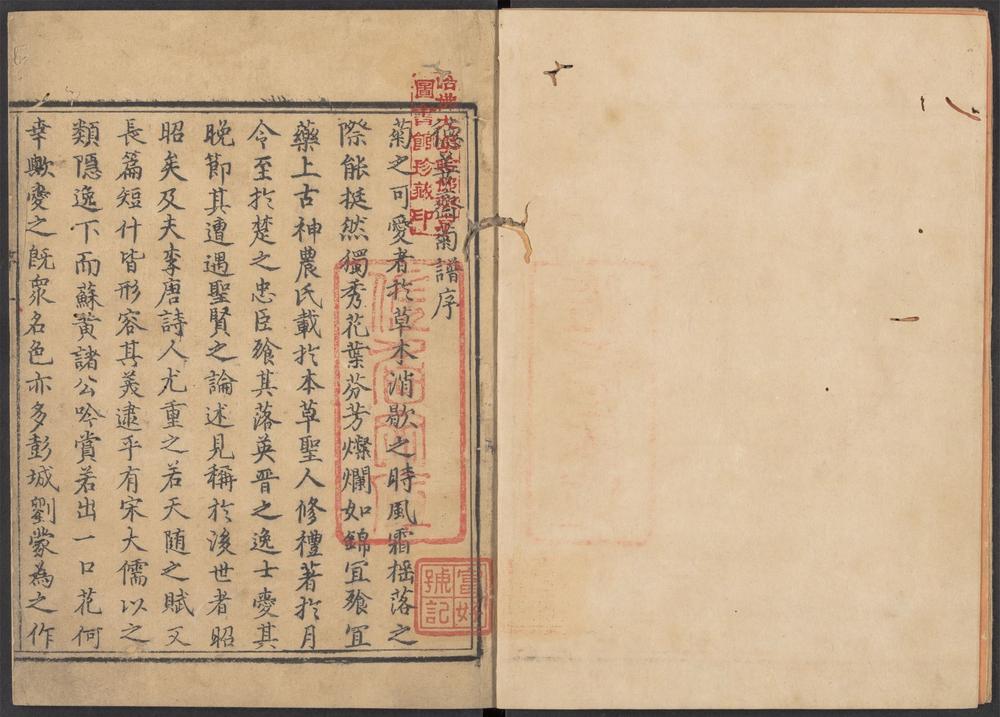 德善齋菊譜序
菊之可愛者於草木消歇之時風霜揺落之
際能挺然獨秀花葉芬芳燦爛如錦冝飱冝
藥上古神農氏載於本草聖人修禮著於月
令至於楚之忠臣飱其落英晋之逸士愛其
晚節其遭遇聖賢之論述見稱於後世者昭
昭矣及夫李唐詩人尤重之若天随之賦又
長篇短什皆形容其美逮乎有宋大儒以之
類隠逸下而蘇黄諸公吟賞若出一口花何
幸歟愛之既衆名色亦多彭城劉蒙為之作
圖書館珍藏印